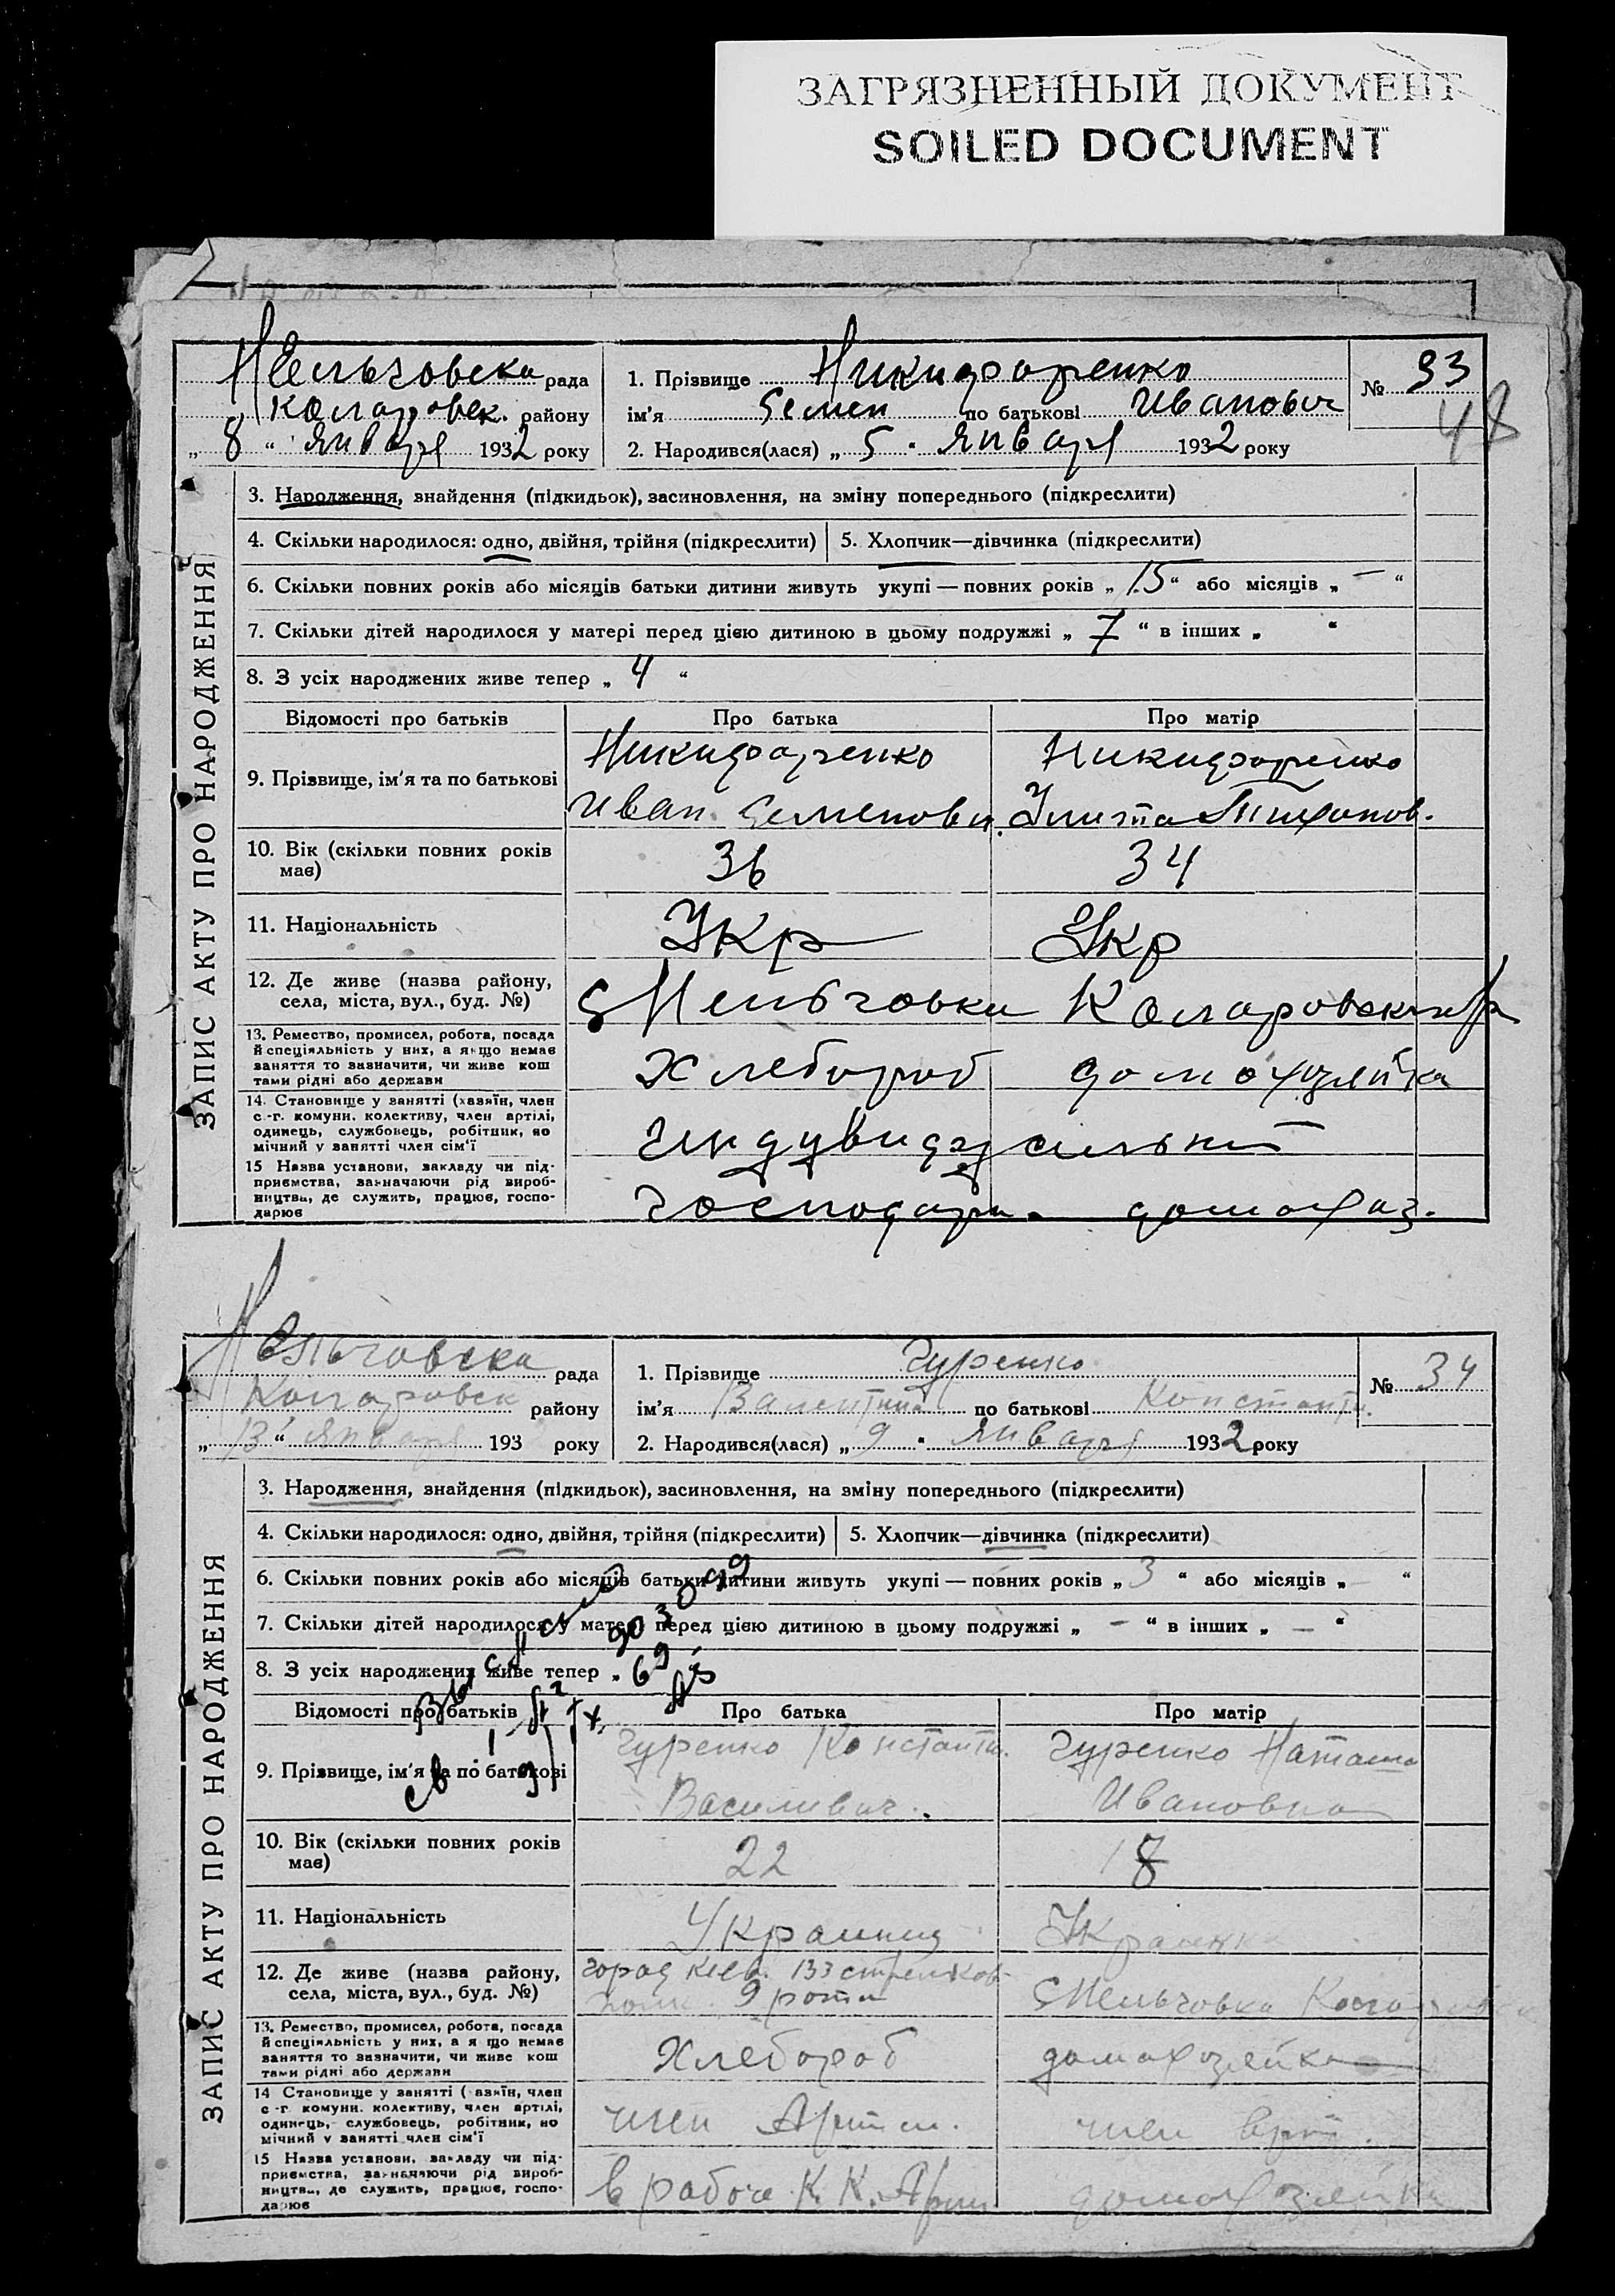 ЗАГРЯЗНЕННЫЙ ДОКУМЕНТ
SOILED DOCUMENT
рада
района
8 " Января 1932 року
1. Прізвище Никифаренко
ім'я Семен по батькові Иванович
2. Народився(лася) „ 5 " Января 1932 року
№ 33
48
ЗАПИС АКТУ ПРО НАРОДЖЕННЯ
3. Народження, знайдення (підкидьок), засиновлення, на зміну попереднього (підкреслити)
4. Скільки народилося: одно, двійня, трійня (підкреслити)
5. Хлопчик—дівчинка (підкреслити)
6. Скільки повних років або місяців батьки дитини живуть укупі — повних років „ 15 “ або місяців „ — “
7. Скільки дітей народилося у матері перед цією дитиною в цьому подружжі „ 7 “ в інших „ “
8. З усіх народжених живе тепер „ 4 “
Відомості про батьків
Про батька
Про матір
9. Прізвище, ім'я та по батькові
Никифаренко
Иван Семенович
Никифоренко
10. Вік (скільки повних років має)
36
34
11. Національність
Укр
Укр
12. Де живе (назва району,
села, міста, вул., буд. №)
13. Ремество, промисел, робота, посада
й спеціяльність у них, а якщо немає
заняття то зазначити, чи живе кош
тами рідні або держави
Хлебороб
домохозяйка
14. Становище у занятті (хазяїн, член
с.-г. комуни, колективу, член артілі,
одинець, службовець, робітник, по
мічний у занятті член сім'ї
15 Назва установи, закладу чи під-
приємства, зазначаючи рід вироб-
ництва, де служить, працює, госпо-
дарює
господари.
домохаз.
рада
району
„ 13 “ Января 193 року
1. Прізвище Гуренко
ім'я Валентина по батькові Константи.
2. Народився(лася) „ 9 “ Января 1932 року
№ 34
ЗАПИС АКТУ ПРО НАРОДЖЕННЯ
3. Народження, знайдення (підкидьок), засиновлення, на зміну попереднього (підкреслити)
4. Скільки народилося: одно, двійня, трійня (підкреслити)
5. Хлопчик—дівчинка (підкреслити)
6. Скільки повних років або місяців батьки дитини живуть укупі — повних років „ 3 “ або місяців „ — “
7. Скільки дітей народилося у матері перед цією дитиною в цьому подружжі „ — “ в інших „ — “
8. З усіх народжених живе тепер „
Відомості про батьків
Про батька
Про матір
9. Прізвище, ім'я та по батькові
Гуренко Константи.
Василивич.
Гуренко Наташа
Ивановна
10. Вік (скільки повних років має)
22
18
11. Національність
Украинец
Украинка
12. Де живе (назва району,
села, міста, вул., буд. №)
город Киев. 133 стрелков.
полк. 9 роти
13. Ремество, промисел, робота, посада
й спеціяльність у них, а якщо немає
заняття то зазначити, чи живе кош
тами рідні або держави
Хлебороб
домохозяйка
14 Становище у занятті (хазяїн, член
с.-г. комуни, колективу, член артілі,
одинець, службовець, робітник, по
мічний у занятті член сім'ї
член Артели.
член арт.
15 Назва установи, закладу чи під-
приємства, зазначаючи рід вироб-
ництва, де служить, працює, госпо-
дарює
домохозяйка